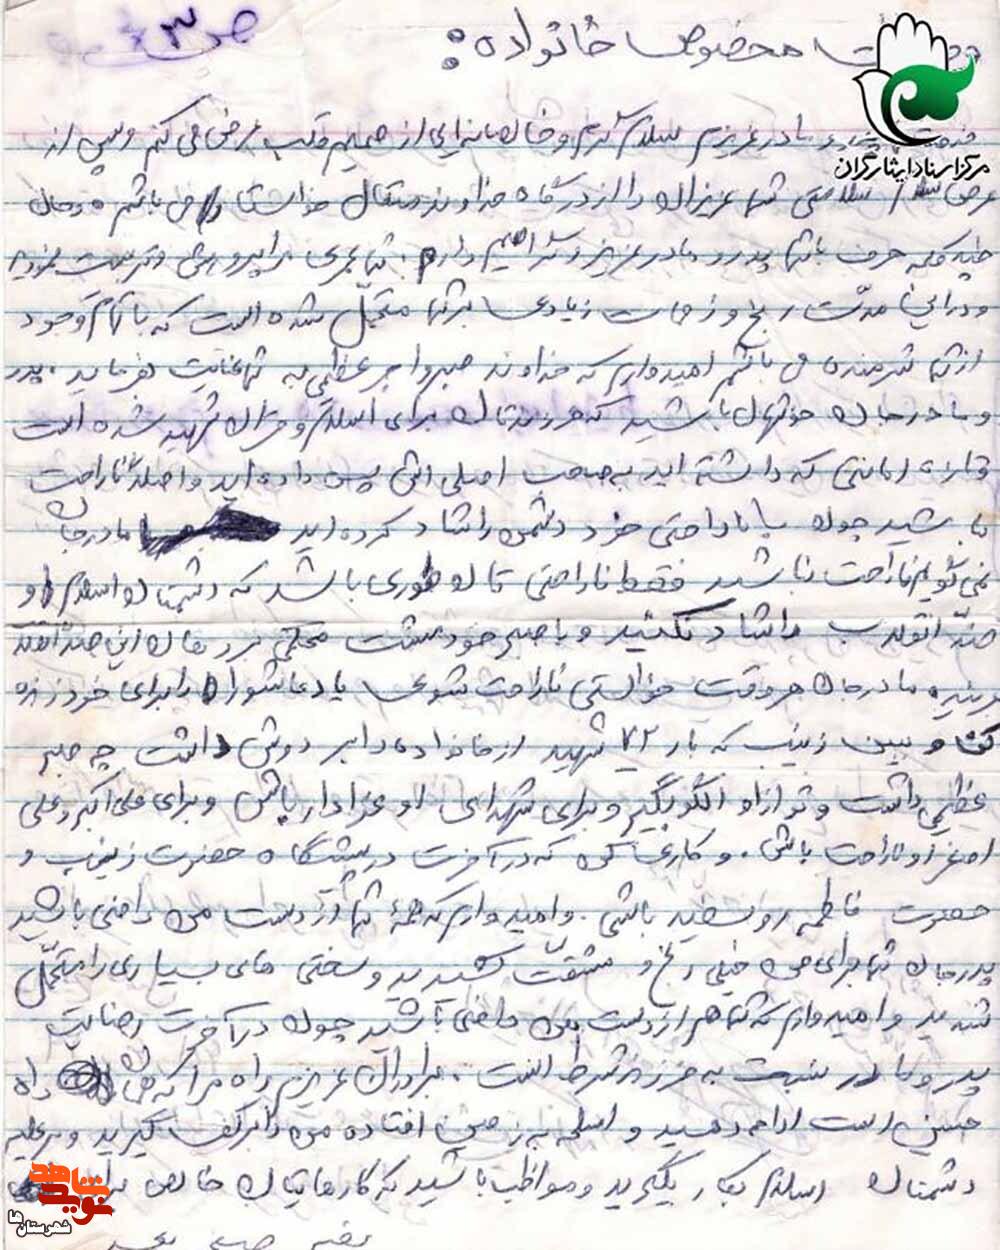 ص ۳
وصیت مخصوص خانواده :
مرکز اسناد ایثارگران
خدمت پدر و مادر عزیزم سلام گرم و خالصانه‌ای از صمیم قلب عرض می کنم و پس از
عرض سلام سلامتی شما عزیزان را از درگاه خداوند متعال خواستار می باشم و حال
چند کلمه حرف با شما پدر و مادر عزیز و گرامیم دارم. شما عمری مرا پرورش و تربیت نمودید
و در این مدت رنج و زحمات زیادی بر شما متحمل شده است که با تمام وجود
از شما شرمنده می باشم امیدوارم که خداوند صبر و اجر عظیمی به شما عنایت بفرماید. پدر
و مادر جان خوشحال باشید که فرزندتان برای اسلام و قرآن شهید شده است
امانتی که داشته اید به صاحب اصلی اش پس داده اید و اصلا ناراحت
نباشید چون با ناراحتی خود دشمن را شاد کرده اید مادر جان
نمی گویم ناراحت نباشید فقط ناراحتی تان طوری باشد که دشمنان اسلام و
ضد انقلاب را شاد نکنید و با صبر خود مشت محکمی بر دهان این ضد انقلاب
بزنید. مادر جان هر وقت خواستی ناراحت شوی یاد عاشورا را برای خود زنده
کن و ببین زینب که بار ۷۲ شهید از خانواده را بر دوش داشت چه صبر
عظیمی داشت و تو از او الگو بگیر و برای شهدای او عزادار باش و برای علی اکبر و علی
اصغر او ناراحت باش. و کاری کن که در آخرت در پیشگاه حضرت زینب و
حضرت فاطمه رو سفید باشی. و امیدوارم که همهٔ شما از دست من راضی باشید
پدر جان شما برای من خیلی رنج و مشقت کشیدید و سختی های بسیاری را متحمل
شدید و امیدوارم که شما هم از دست من راضی باشید چون در آخرت رضایت
پدر و مادر نسبت به فرزند شرط است. برادران عزیزم راه مرا که همان راه
حسین است ادامه دهید و اسلحه به زمین افتاده من را بر کف گیرید و بر علیه
دشمنان اسلام بکار بگیرید و مواظب باشید که کارهایتان خالص برای
نوید شاهد
شهرستان ها